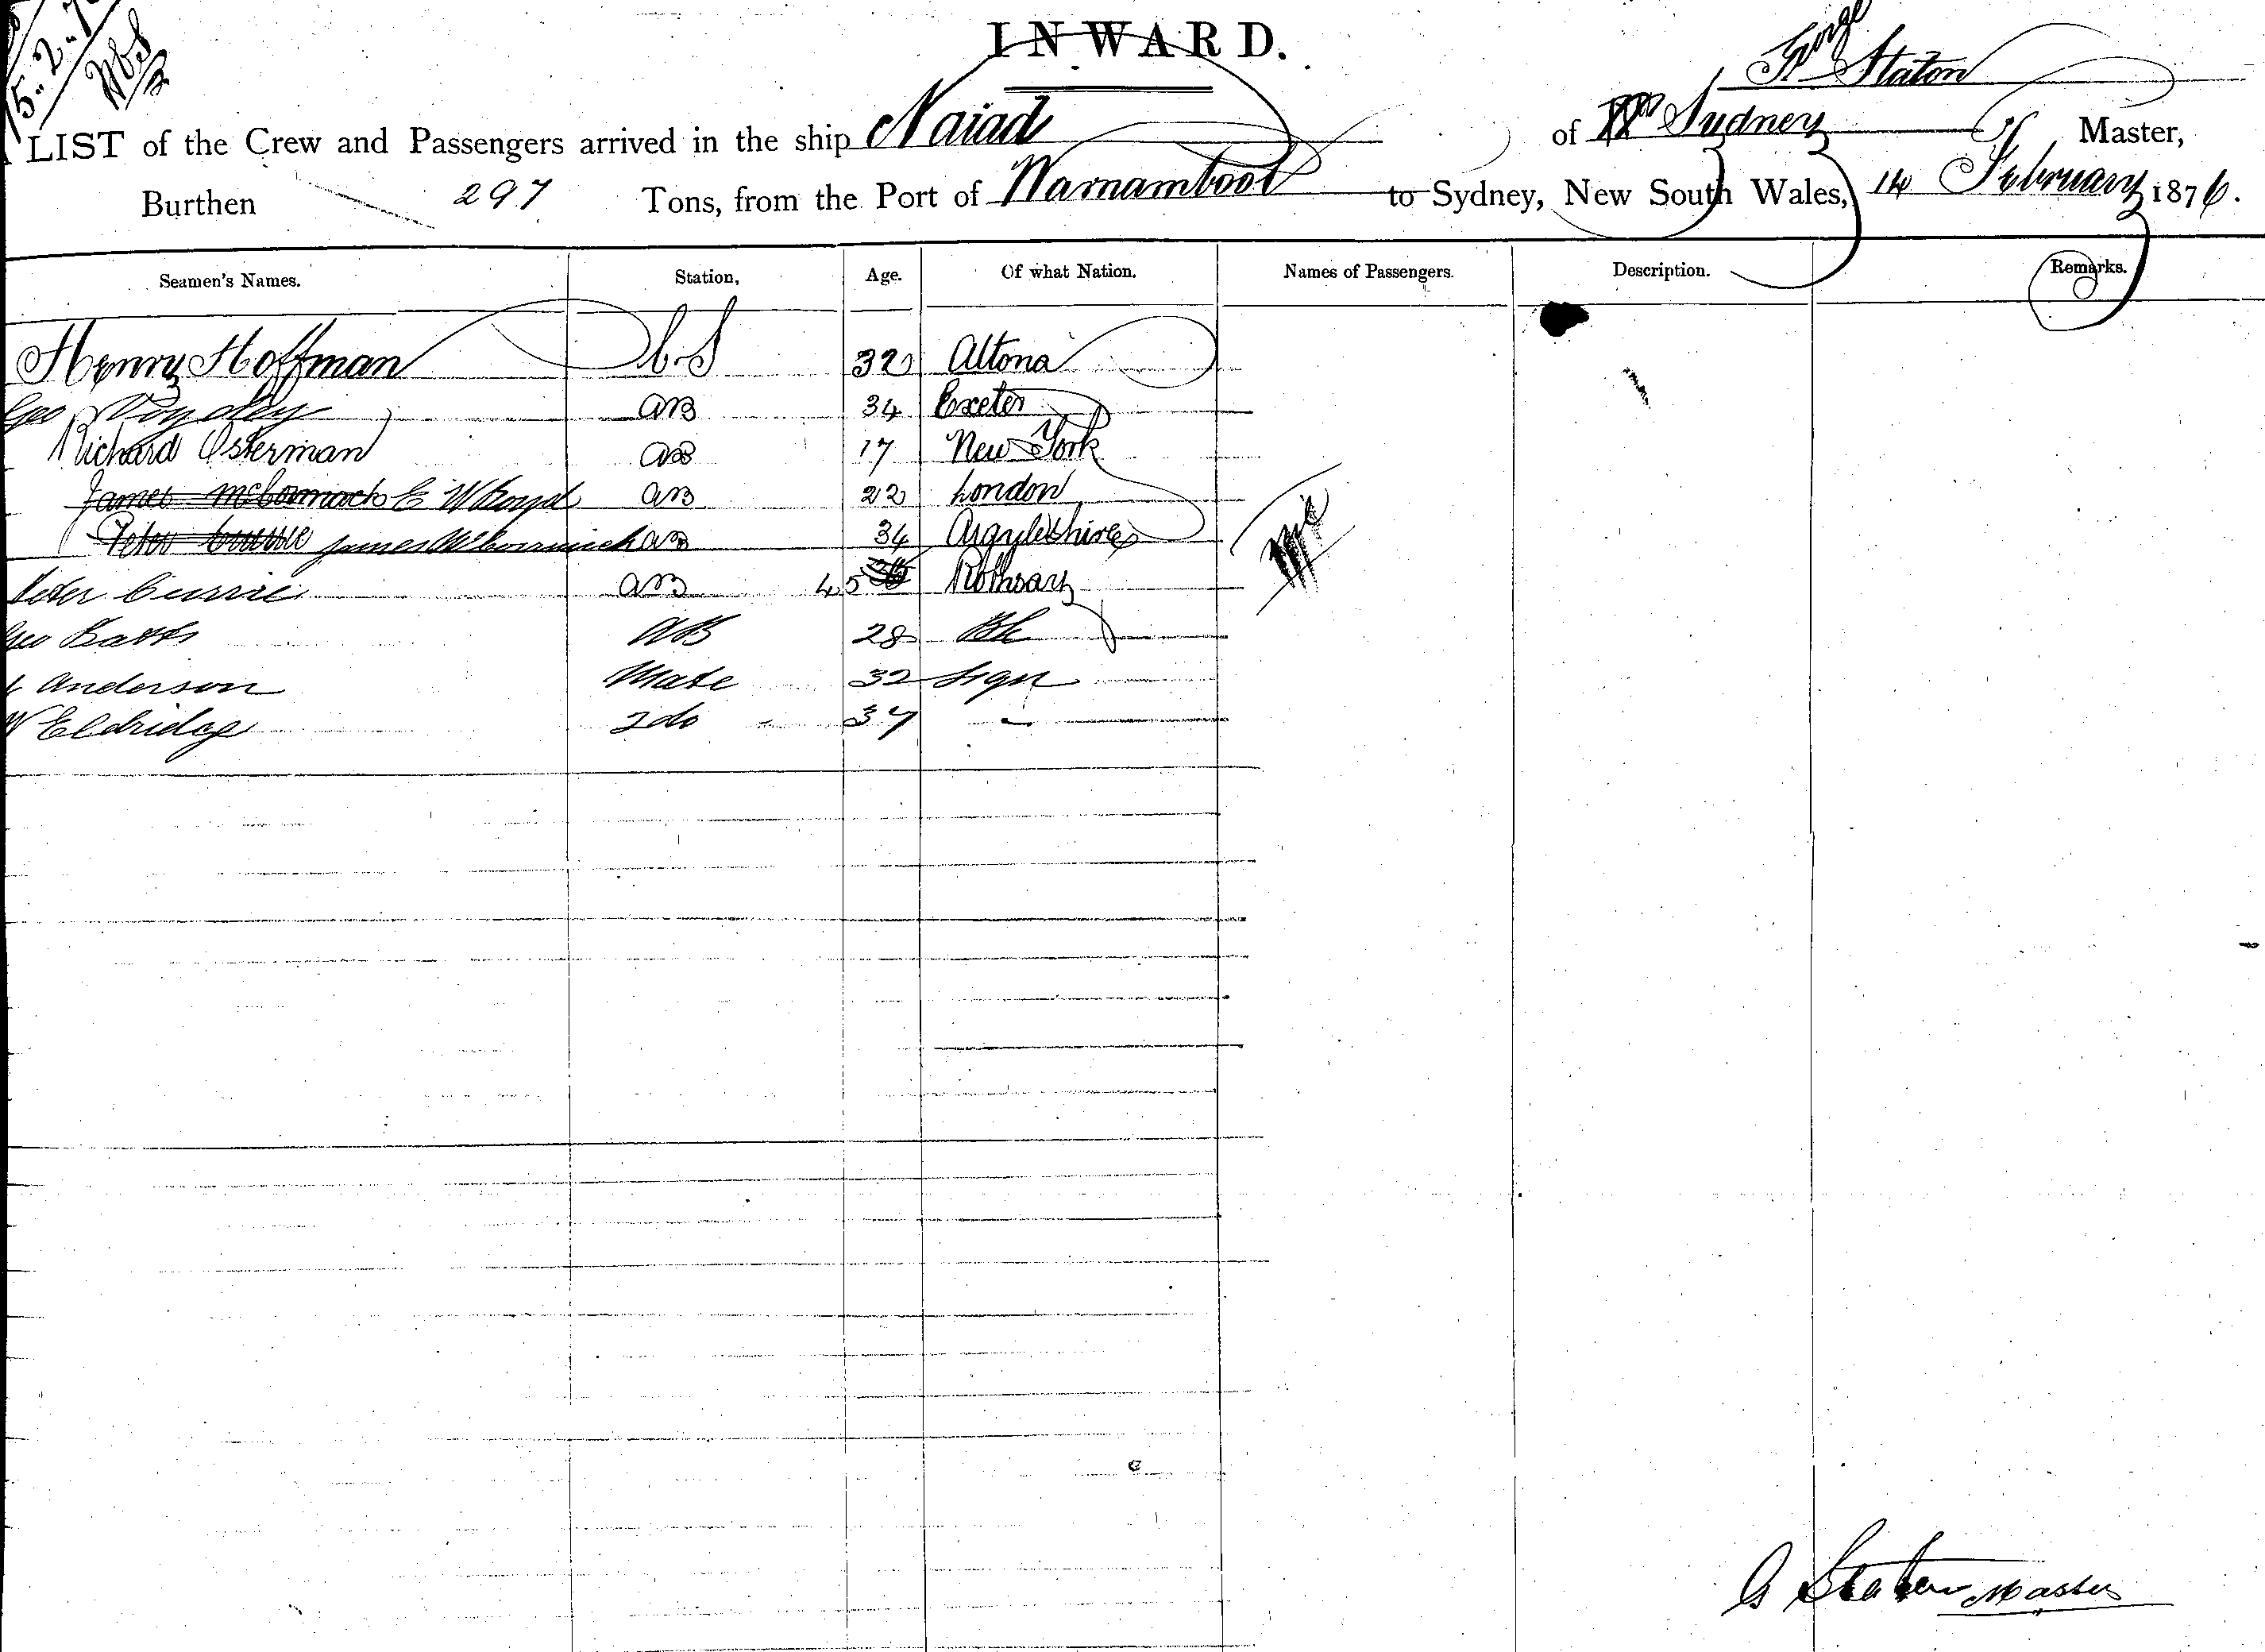 15.2.7
INWARD.
George
Staton
LIST of the Crew and Passengers arrived in the ship Naiad of Sydney Master,
Burthen 297 Tons, from the Port of Warnambool to Sydney, New South Wales, 14 February 1876.
Seamen's Names. Station, Age. Of what Nation. Names of Passengers. Description. Remarks.
Henry Hoffman C.S 32 Altona
Geo AB 34 Exeter
Richard Osterman AB 17 New York
James McCormack E W Boyd AB 22 London
Peter Currie James McCormick AB 34 Argyleshire
Peter Currie AB 45 Rothsay
Geo Batts AB 28 Bk
Anderson Mate 32 Sign
W Eldridge 2 do 37 -
G Staton Master